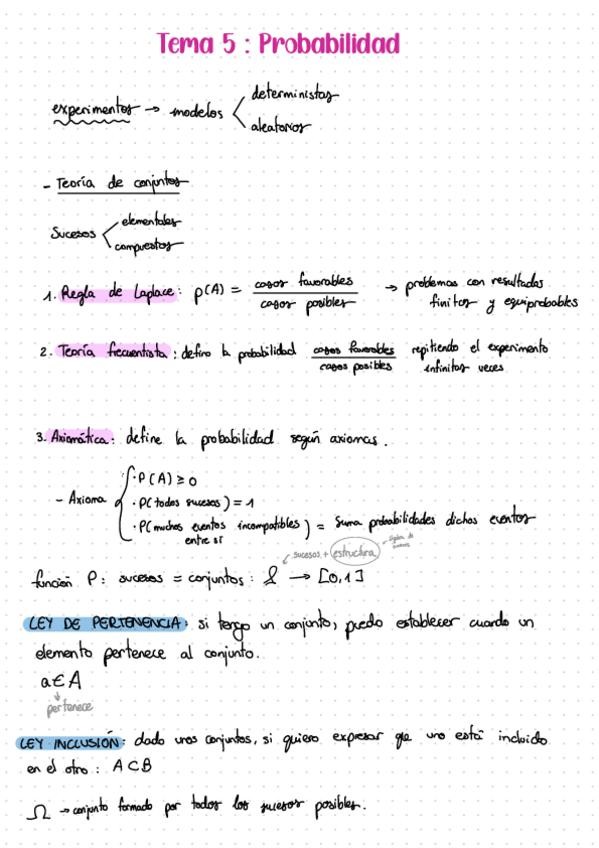 Tema 5 : Probabilidad
experimentos → modelos
deterministas
aleatorios
- Teoría de conjuntos
Sucesos
elementales
compuestos
1. Regla de Laplace: p(A) = casos favorables / casos posibles → problemas con resultados
finitos y equiprobables
2. Teoría frecuentista: defino la probabilidad casos favorables / casos posibles repitiendo el experimento
infinitas veces
3. Axiomática: define la probabilidad según axiomas.
· P(A) ≥ 0
- Axioma · P(todos sucesos) = 1
· P(muchos eventos incompatibles) = suma probabilidades dichos eventos
entre sí
sucesos + estructura álgebra de
función P: sucesos = conjuntos: → [0,1]
LEY DE PERTENENCIA: si tengo un conjunto, puedo establecer cuando un
elemento pertenece al conjunto.
a∈A
pertenece
LEY INCLUSIÓN: dado unos conjuntos, si quiero expresar que uno está incluido
en el otro: A⊂B
Ω → conjunto formado por todos los sucesos posibles.